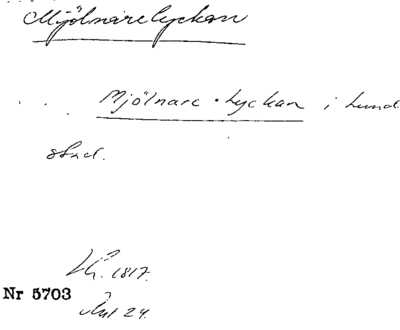 Mjölnarelyckan
Mjölnare-lyckan i Lund
stad.
1817.
Nr 5703
24.